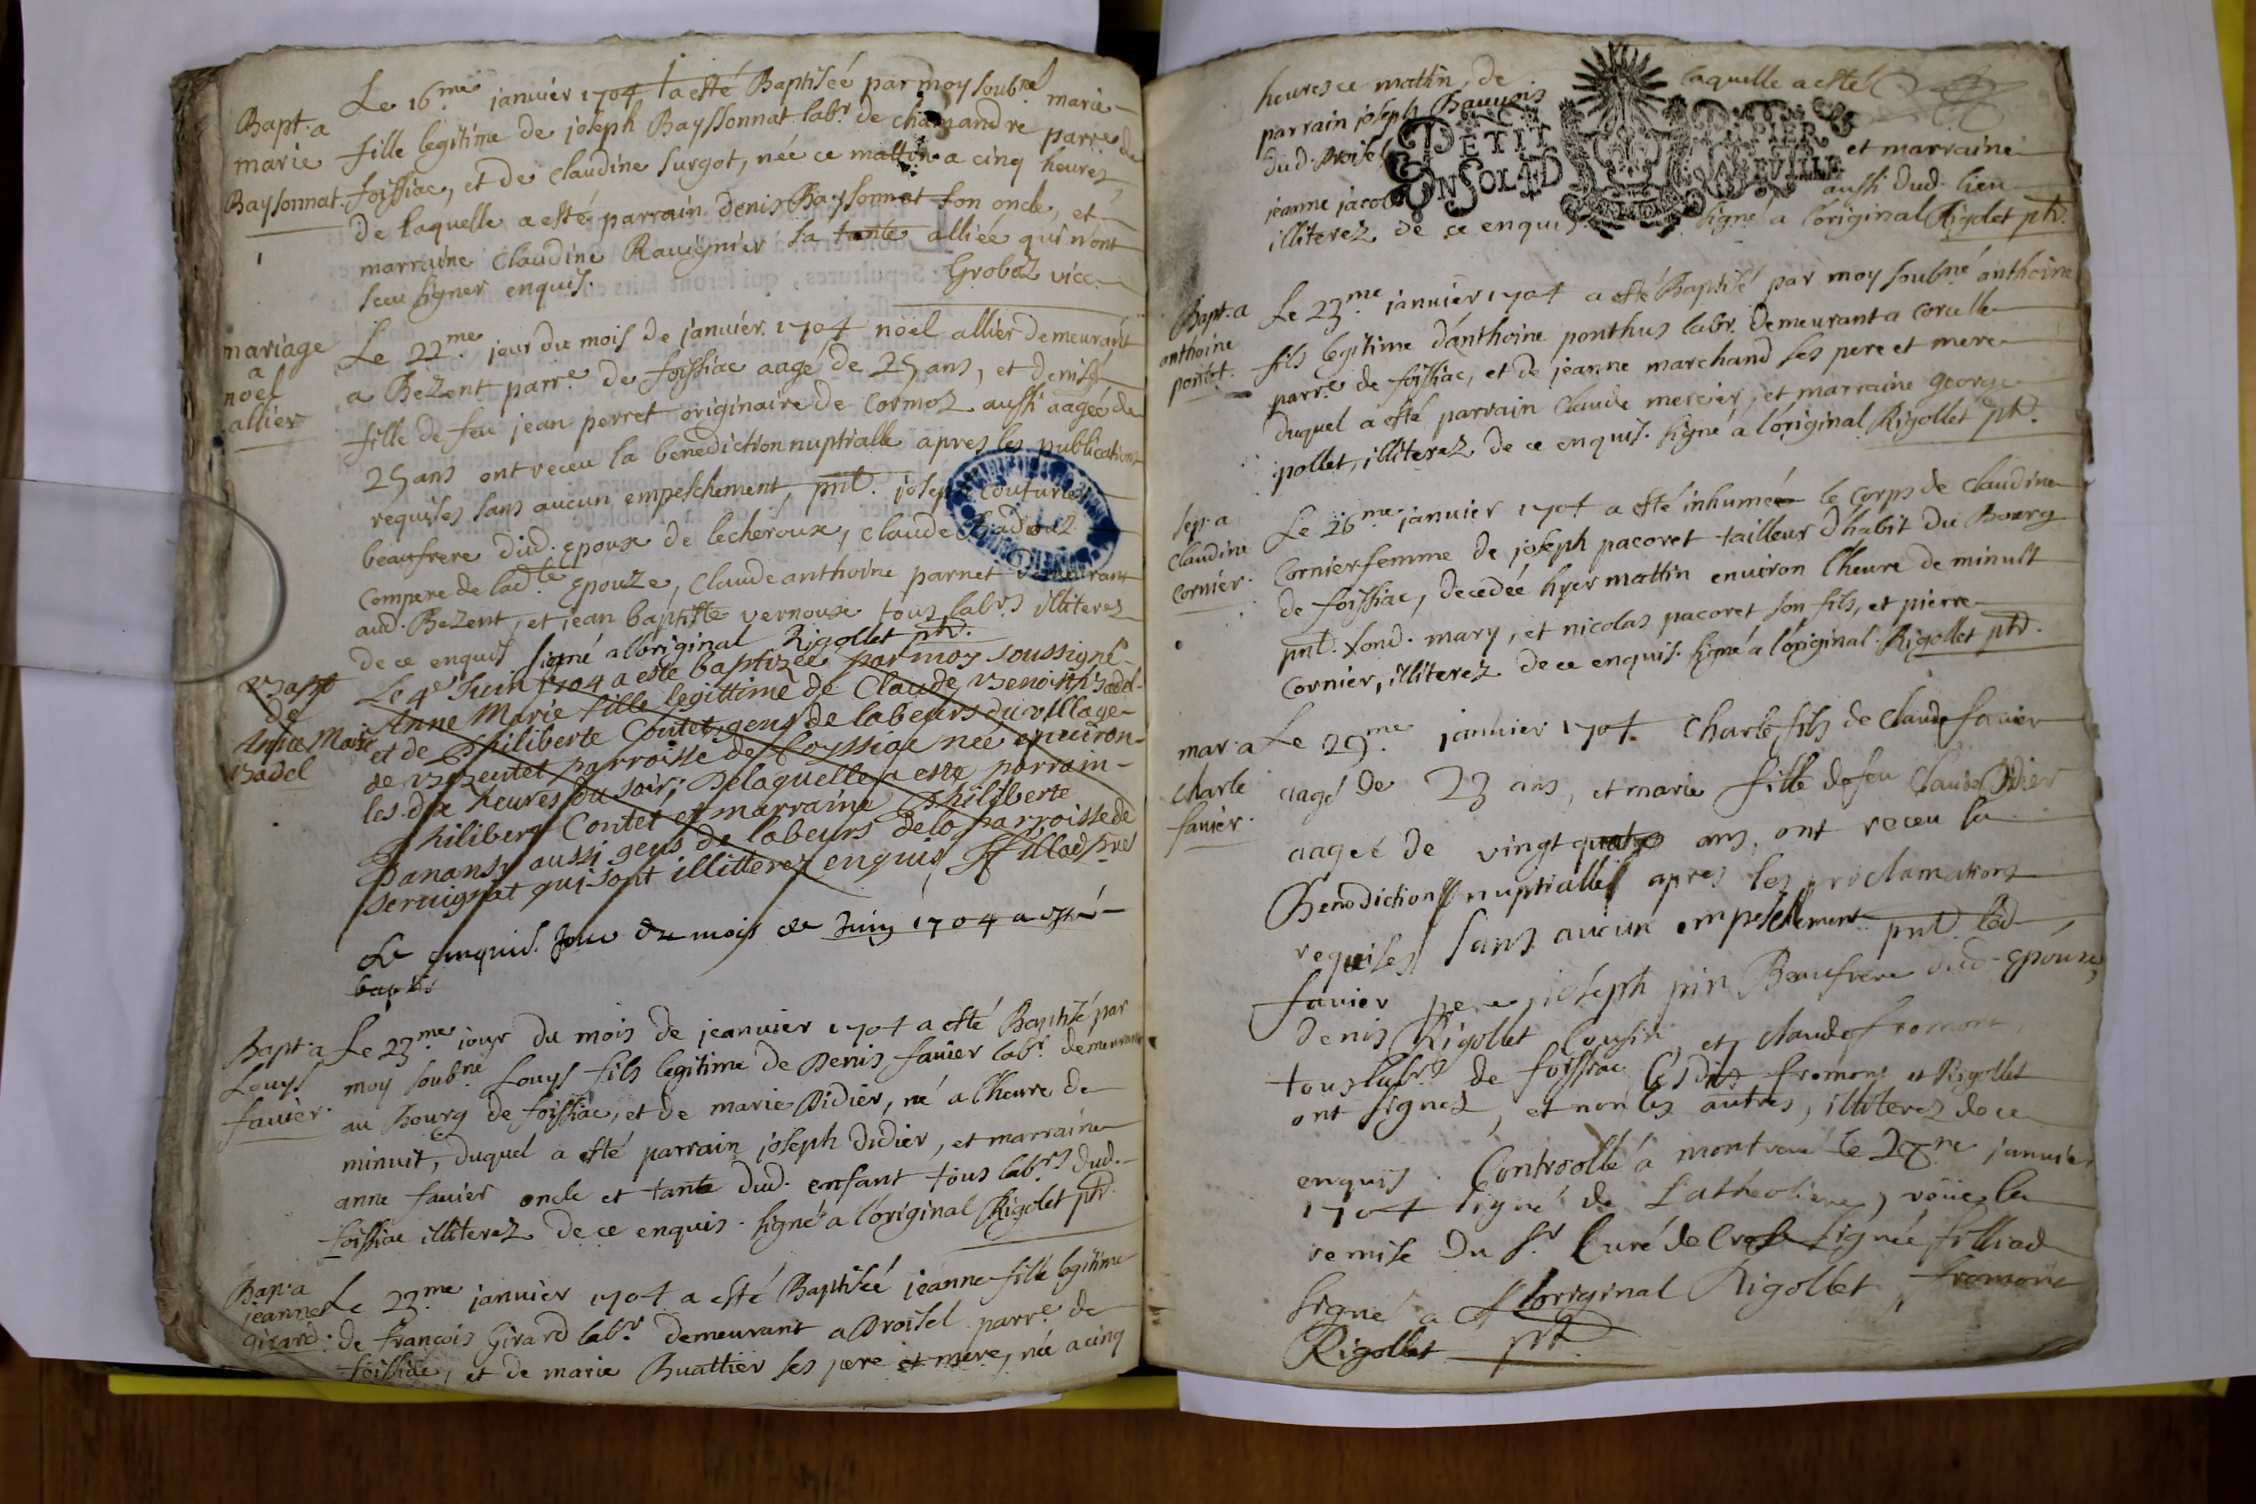 Le 16me janvier 1704 a esté Baptisée par moy soubné marie
Bapt. a
marie
Bayssonnat.
fille legitime de joseph Bayssonnat labr. de chamandre parre de
foissiac, et de claudine surgot, née ce mattin a cinq heures,
de laquelle a esté parrain denis Bayssonnat son oncle, et
marraine claudine Rauignier sa tante alliée qui n'ont
sceu signer enquis. Groboz vicc.
mariage
a
noel
allier
Le 22me. jour du mois de janvier. 1704 nöel allier demeurant
a Bezent parre. de foissiac aagé de 25 ans, et denise
fille de feu jean perret originaire de Cormoz aussi aagée de
25 ans ont receu la benediction nuptialle apres les publications
requises sans aucun empeschement, pnt. joseph couturier
beaufrere dud. epoux de lecheroux, claude
compere de lad.te epouze, claude anthoine parnet demeurant
aud. Bezent, et jean baptiste vernoux tous labrs illiterez
de ce enquis signé a l'original Rigollet ptr.
Bapt
de
Anne Marie
Badel
Le 4e Juin 1704 a este baptizée par moy soussigné
Anne Marie fille legittime de Claude Benoist Badel
et de Philiberte Contet gens de labeurs du village
de Bezentet parroisse de Foyssiac née enuiron
les dix heures du soir; De laquelle a este parrain
Philibert Contet et marraine Philiberte
Panansy aussi gens de labeurs de la parroisse de
seruignat qui sont illitterez enquis, Filliad pre
Le cinquie. Jour du mois de Juin 1704 a esté
bapti
Bapt. a
Louys
favier.
Le 23me. jour du mois de jeanvier 1704 a esté Baptisé par
moy soubné Louys fils legitime de Denis favier labr. demeurant
au Bourg de foissiac, et de marie Didier, né a l'heure de
minuit, duquel a esté parrain joseph Didier, et marraine
anne favier oncle et tante dud. enfant tous labrs dud.
foissiac illiterez de ce enquis. signé a l'original Rigolet ptr.
Bap. a
jeanne
girard.
Le 23me. janvier 1704 a esté Baptisée jeanne fille legitime
de françois Girard labr. demeurant a Droisel parre. de
foissiac, et de marie Buattier ses pere et mere, née a cinq
heures ce mattin, de laquelle a esté
parrain joseph
dud. Droisel et marraine
jeanne jacob aussi dud. lieu
illiterez de ce enquis signé a l'original Rigolet ptr.
PETIT PAPIER
UN SOL 4 D
Bapt. a
anthoine
pontet.
Le 23me. janvier 1704 a esté Baptisé par moy soubné anthoine
fils legitime d'anthoine ponthus labr. demeurant a corcelle
parre. de foissiac, et de jeanne marchand ses pere et mere
duquel a esté parrain claude mercier, et marraine george
pollet, illiterez de ce enquis. signé a l'original Rigollet ptr.
sep. a
claudine
cornier.
Le 26me janvier 1704 a esté inhumée le corps de claudine
Cornier femme de joseph pacoret tailleur d'habit du Bourg
de foissiac, decedée hyer mattin environ l'heure de minuit
pnt. sond. mary, et nicolas pacoret son fils, et pierre
Cornier, illiterez de ce enquis. signé a l'original. Rigollet ptr.
mar. a
charle
favier.
Le 29me. janvier 1704. Charle fils de claude favier
aagé de 23 ans, et marie fille de feu Claude Didier
aagée de vingt quatre ans, ont receu la
Benediction nuptialle apres les proclamations
requises sans aucun empeschement pnt. led.
favier pere, joseph pin Beaufrere dud. epoux,
denis Rigollet Cousin, et claude fromont,
tous labrs de foissiac lesdits fromont et Rigollet
ont signez, et non les autres, illiterez de ce
enquis. Controollé a montrevel le janvier
1704 signé de Latheoliere, vöue la
remise du Sr. Curé de Cras signée filliad
signé a l'original Rigollet, fromont
Rigollet ptr.